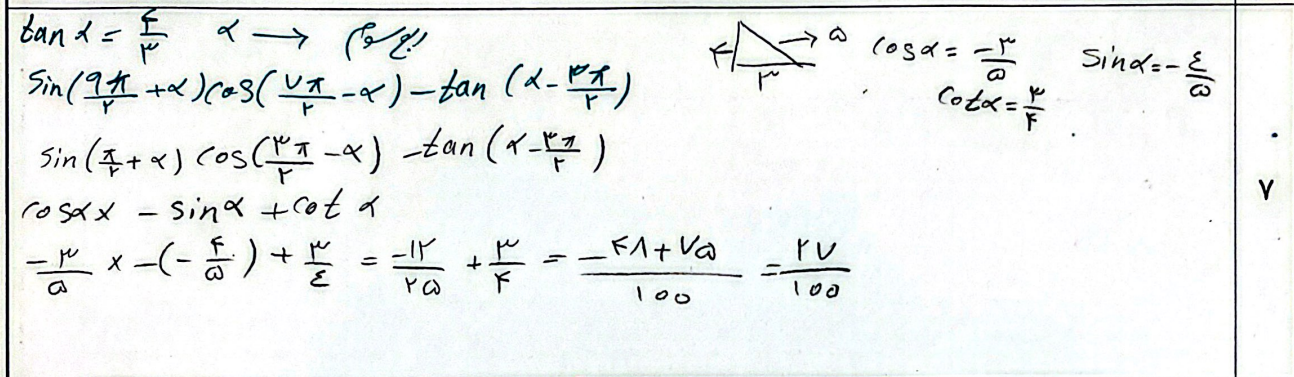 tan α = ۴/۳ α → ربع سوم
۴ ۳ → ۵ cosα = -۳/۵ sinα = -۴/۵
cotα = ۳/۴
sin(۹π/۲ + α) cos(۷π/۲ - α) - tan (α - ۳π/۲)
sin(π/۲ + α) cos(۳π/۲ - α) - tan (α - ۳π/۲)
۷
cosα x - sinα + cot α
-۳/۵ × -(-۴/۵) + ۳/۴ = -۱۲/۲۵ + ۳/۴ = -۴۸+۷۵/۱۰۰ = ۲۷/۱۰۰